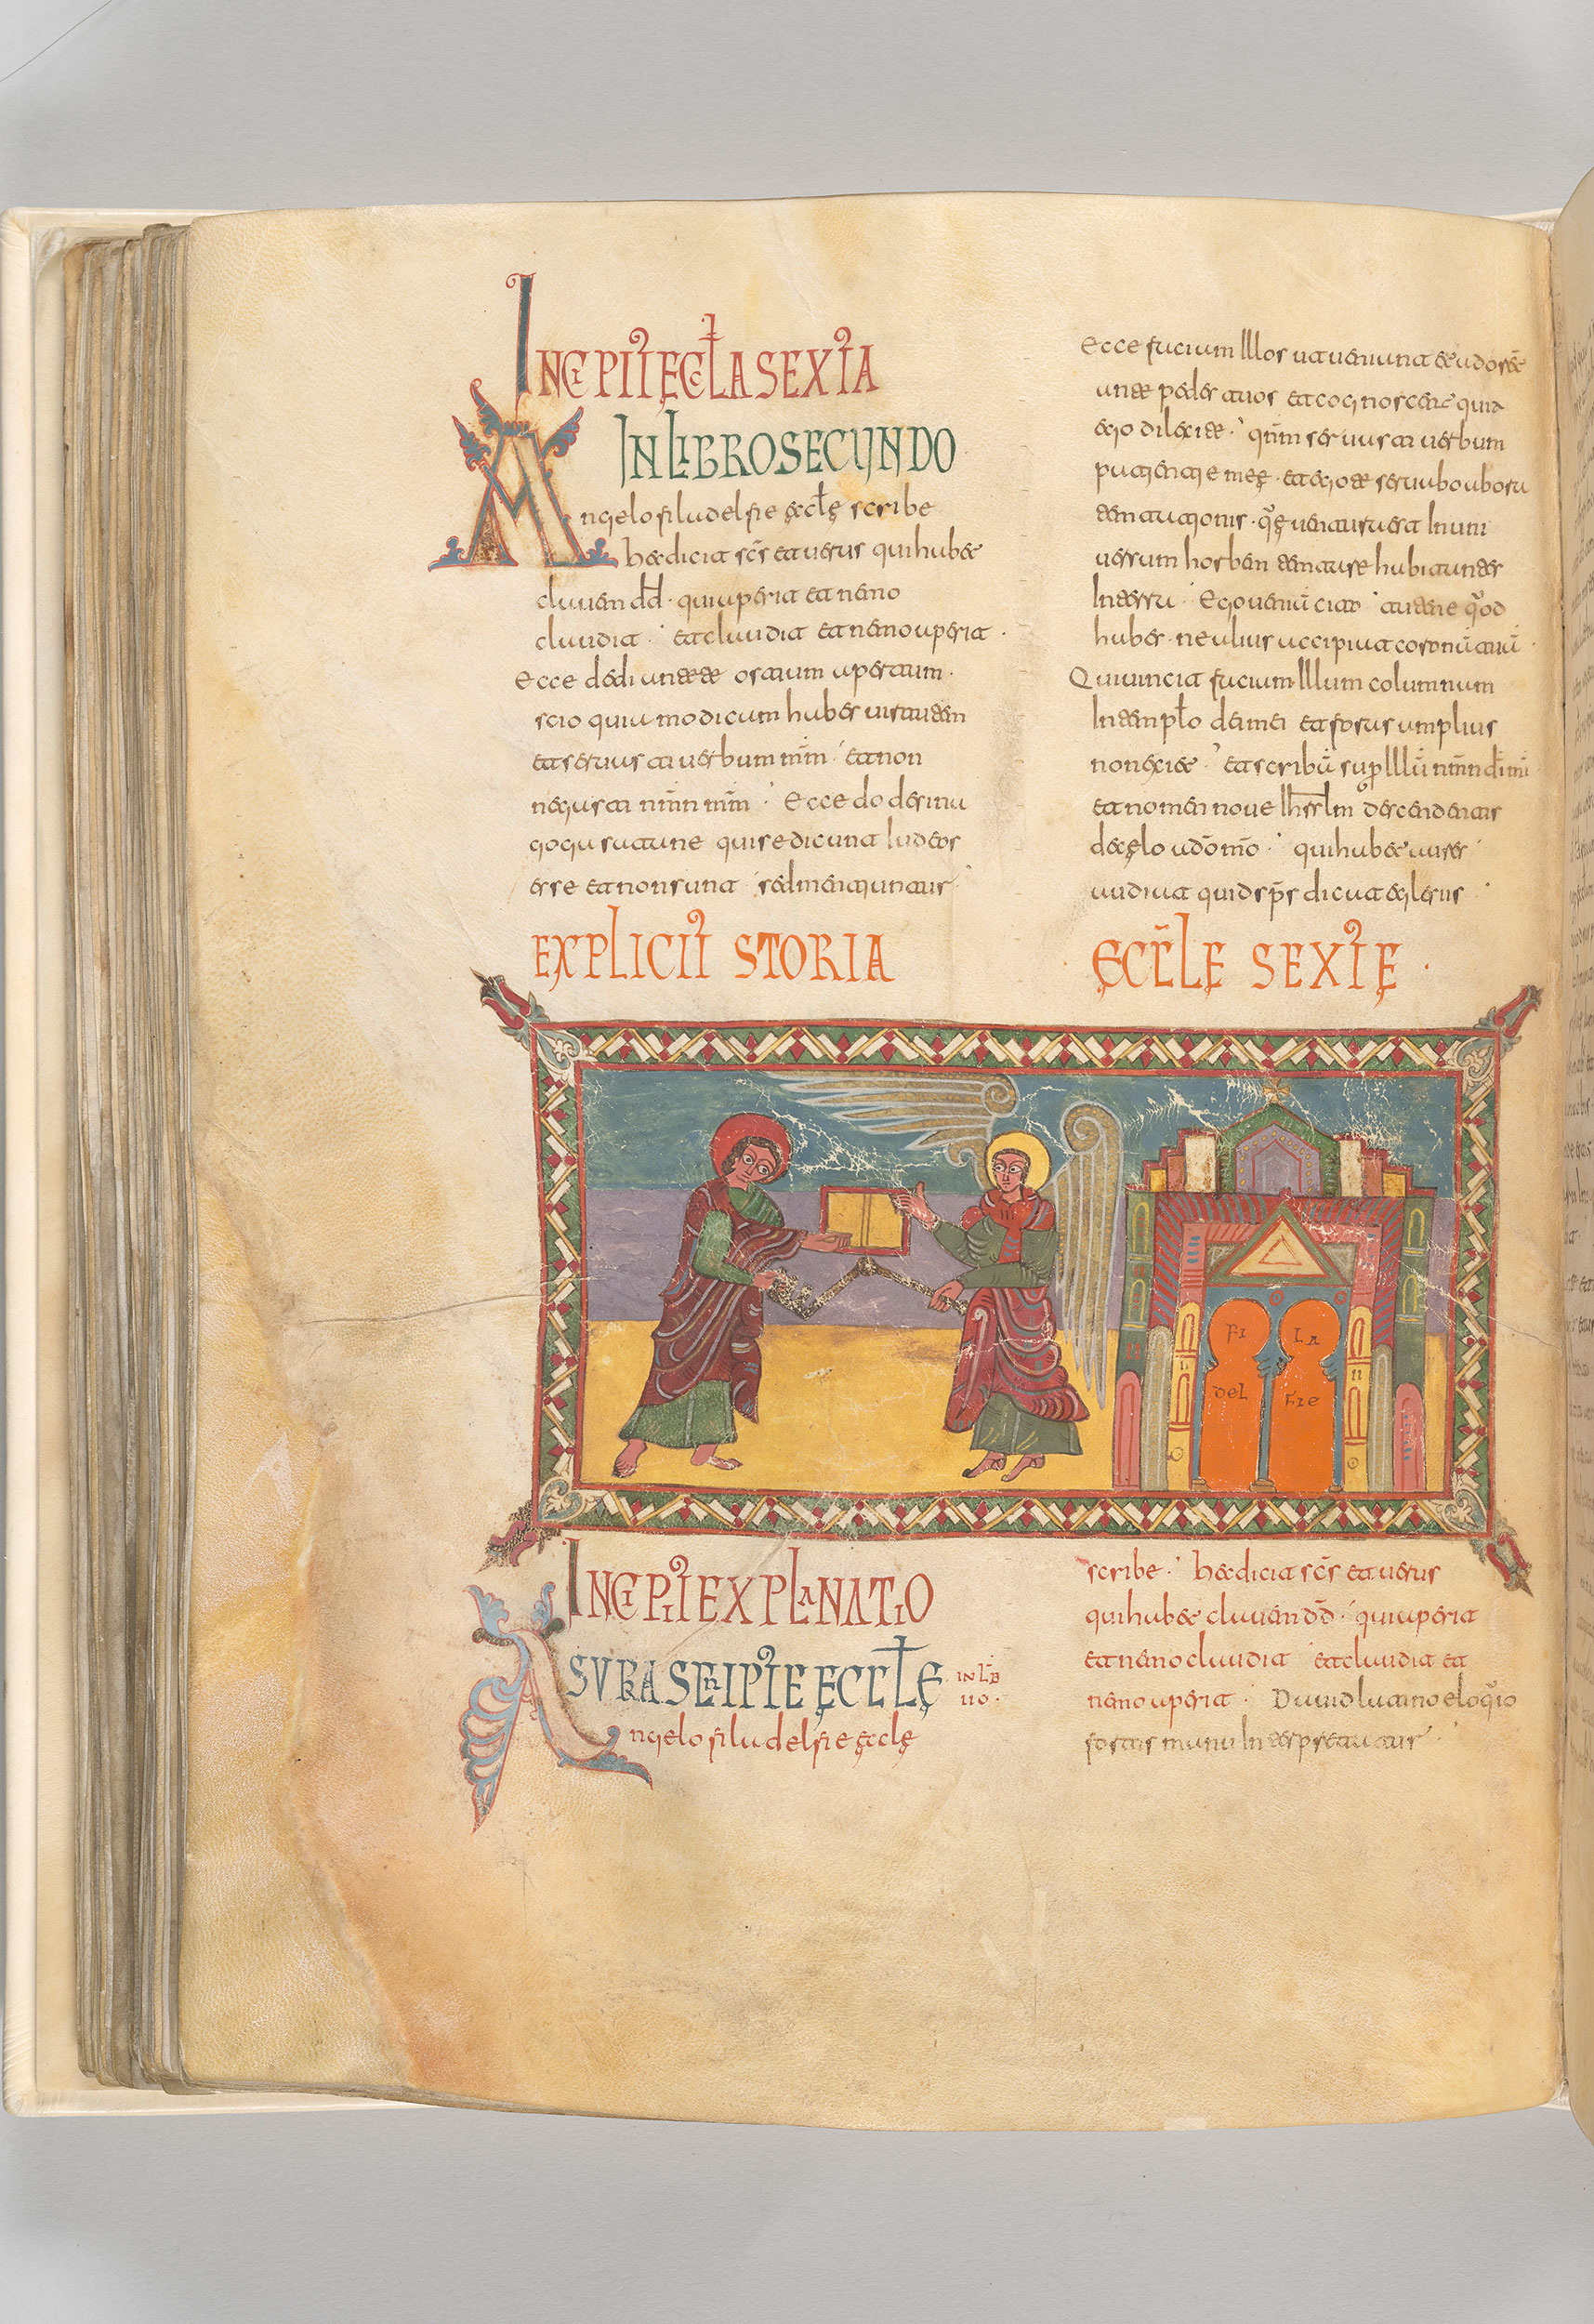 INCIPIT ECCLA SEXTA
IN LIBRO SECUNDO
Angelo filadelfie ęcclę scribe
hec dicit scs et uerus qui habet
clauem dd · qui aperit et nemo
claudit · et claudit et nemo aperit ·
Ecce dedi ante te ostium apertum ·
scio quia modicum habes uirtutem
et seruasti uerbum mm̄ · et non
negasti nmn̄ mm̄ · Ecce do de sina
goga satane qui se dicunt Iudeos
esse et non sunt sed mentiuntur
Ecce faciam Illos ut ueniant et adorēt
ante pedes tuos et cognoscent quia
ego dilexi te · qnm̄ seruasti uerbum
patientie meę · et ego te seruabo ab ora
temtationis · qę uentura est In uni
uersum horben temtare habitantes
In terra · Ego ueniū cito · tene qod
habes · ne alius accipiat coronā tuā ·
Qui uincit faciam Illum columnam
In templo dei mei et foras amplius
non exiet · et scribā supr Illū nmn̄ di mi
et nomen noue Ihrslm descendentis
de cęlo a dōmō · qui habet aures
audiat quid sps̄ dicat eglesiis ·
EXPLICIT STORIA ĘCCLE SEXTĘ ·
FI LA
DEL FIE
INCIPIT EXPLANATIO
SUPRASCRIPTE ĘCCLĘ IN LB̄
IIO ·
Angelo filadelfie ęcclę
scribe · hec dicit scs̄ et uerus
qui habet clauem dd̄ · qui aperit
et nemo claudit et claudit et
nemo aperit · Dauid latino eloqio
fortis manu Interpretatur ·